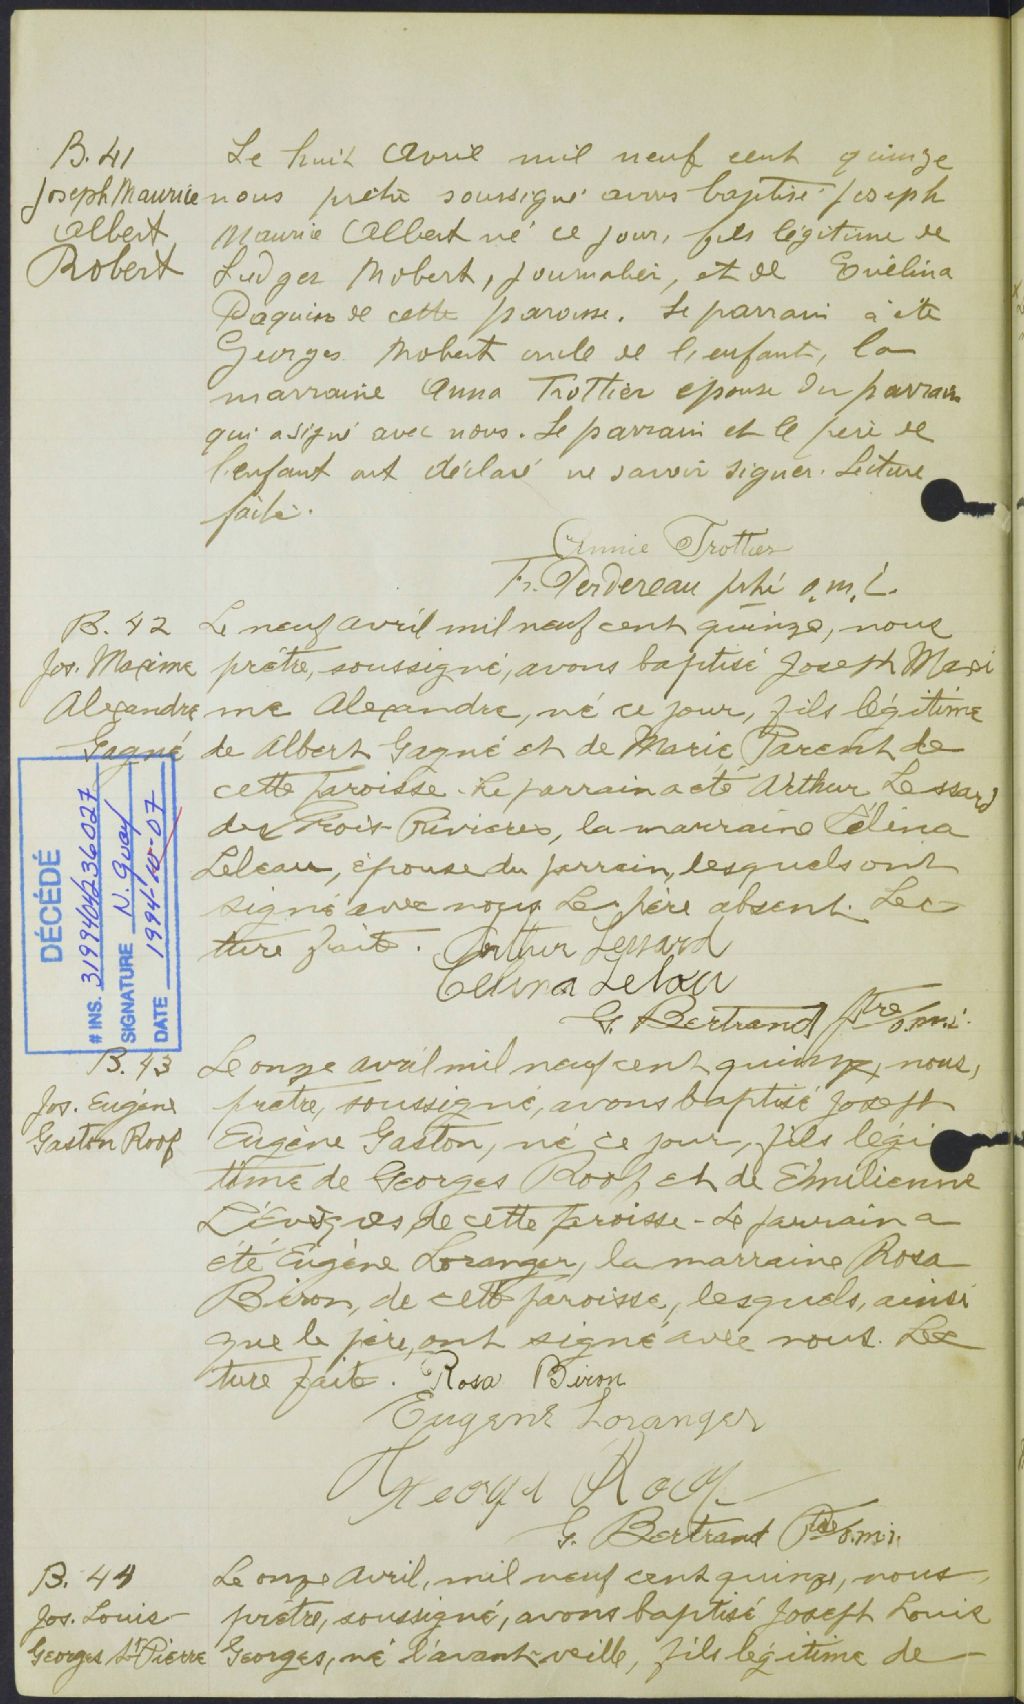 B. 41
Joseph Maurice
Albert
Robert
Le huit avril mil neuf cent quinze
nous prêtre soussigné avons baptisé Joseph
Maurice Albert né ce jour, fils légitime de
Ludger Robert, journalier, et de Evélina
Paquin de cette paroisse. Le parrain a été
Georges Robert oncle de l'enfant, la
marraine Anna Trottier épouse du parrain
qui a signé avec nous. Le parrain et le père de
l'enfant ont déclaré ne savoir signer. Lecture
faite.
Annie Trottier
Fr. Perdereau ptre o.m.i.
B. 42
Jos. Maxime
Alexandre
Gagné
Le neuf avril mil neuf cent quinze, nous
prêtre, soussigné, avons baptisé Joseph Maxi
me Alexandre, né ce jour, fils légitime
de Albert Gagné et de Marie Parent de
cette paroisse. Le parrain a été Arthur Lessard
des Trois-Rivières, la marraine Célina
Lebeau, épouse du parrain, lesquels ont
signé avec nous. Le père absent. Lec-
ture faite. Arthur Lessard
Celina Lebau
G. Bertrand ptre o.m.i.
DÉCÉDÉ
# INS. 3199404236027
SIGNATURE N. Guay
DATE 1994-10-07
B. 43
Jos. Eugène
Gaston Roof
Le onze avril mil neuf cent quinze, nous,
prêtre, soussigné, avons baptisé Joseph
Eugène Gaston, né ce jour, fils légi
time de Georges Roof, et de Emilienne
Lévèques, de cette paroisse - Le parrain a
été Eugène Loranger, la marraine Rosa
Biron, de cette paroisse, lesquels, ainsi
que le père, ont signé avec nous. Lec
ture faite. Rosa Biron
Eugene Loranger
George Roof
G. Bertrand Ptre o.m.i.
B. 44
Jos. Louis
Georges St-Pierre
Le onze avril, mil neuf cent quinze, nous,
prêtre, soussigné, avons baptisé Joseph Louis
Georges, né l'avant-veille, fils légitime de